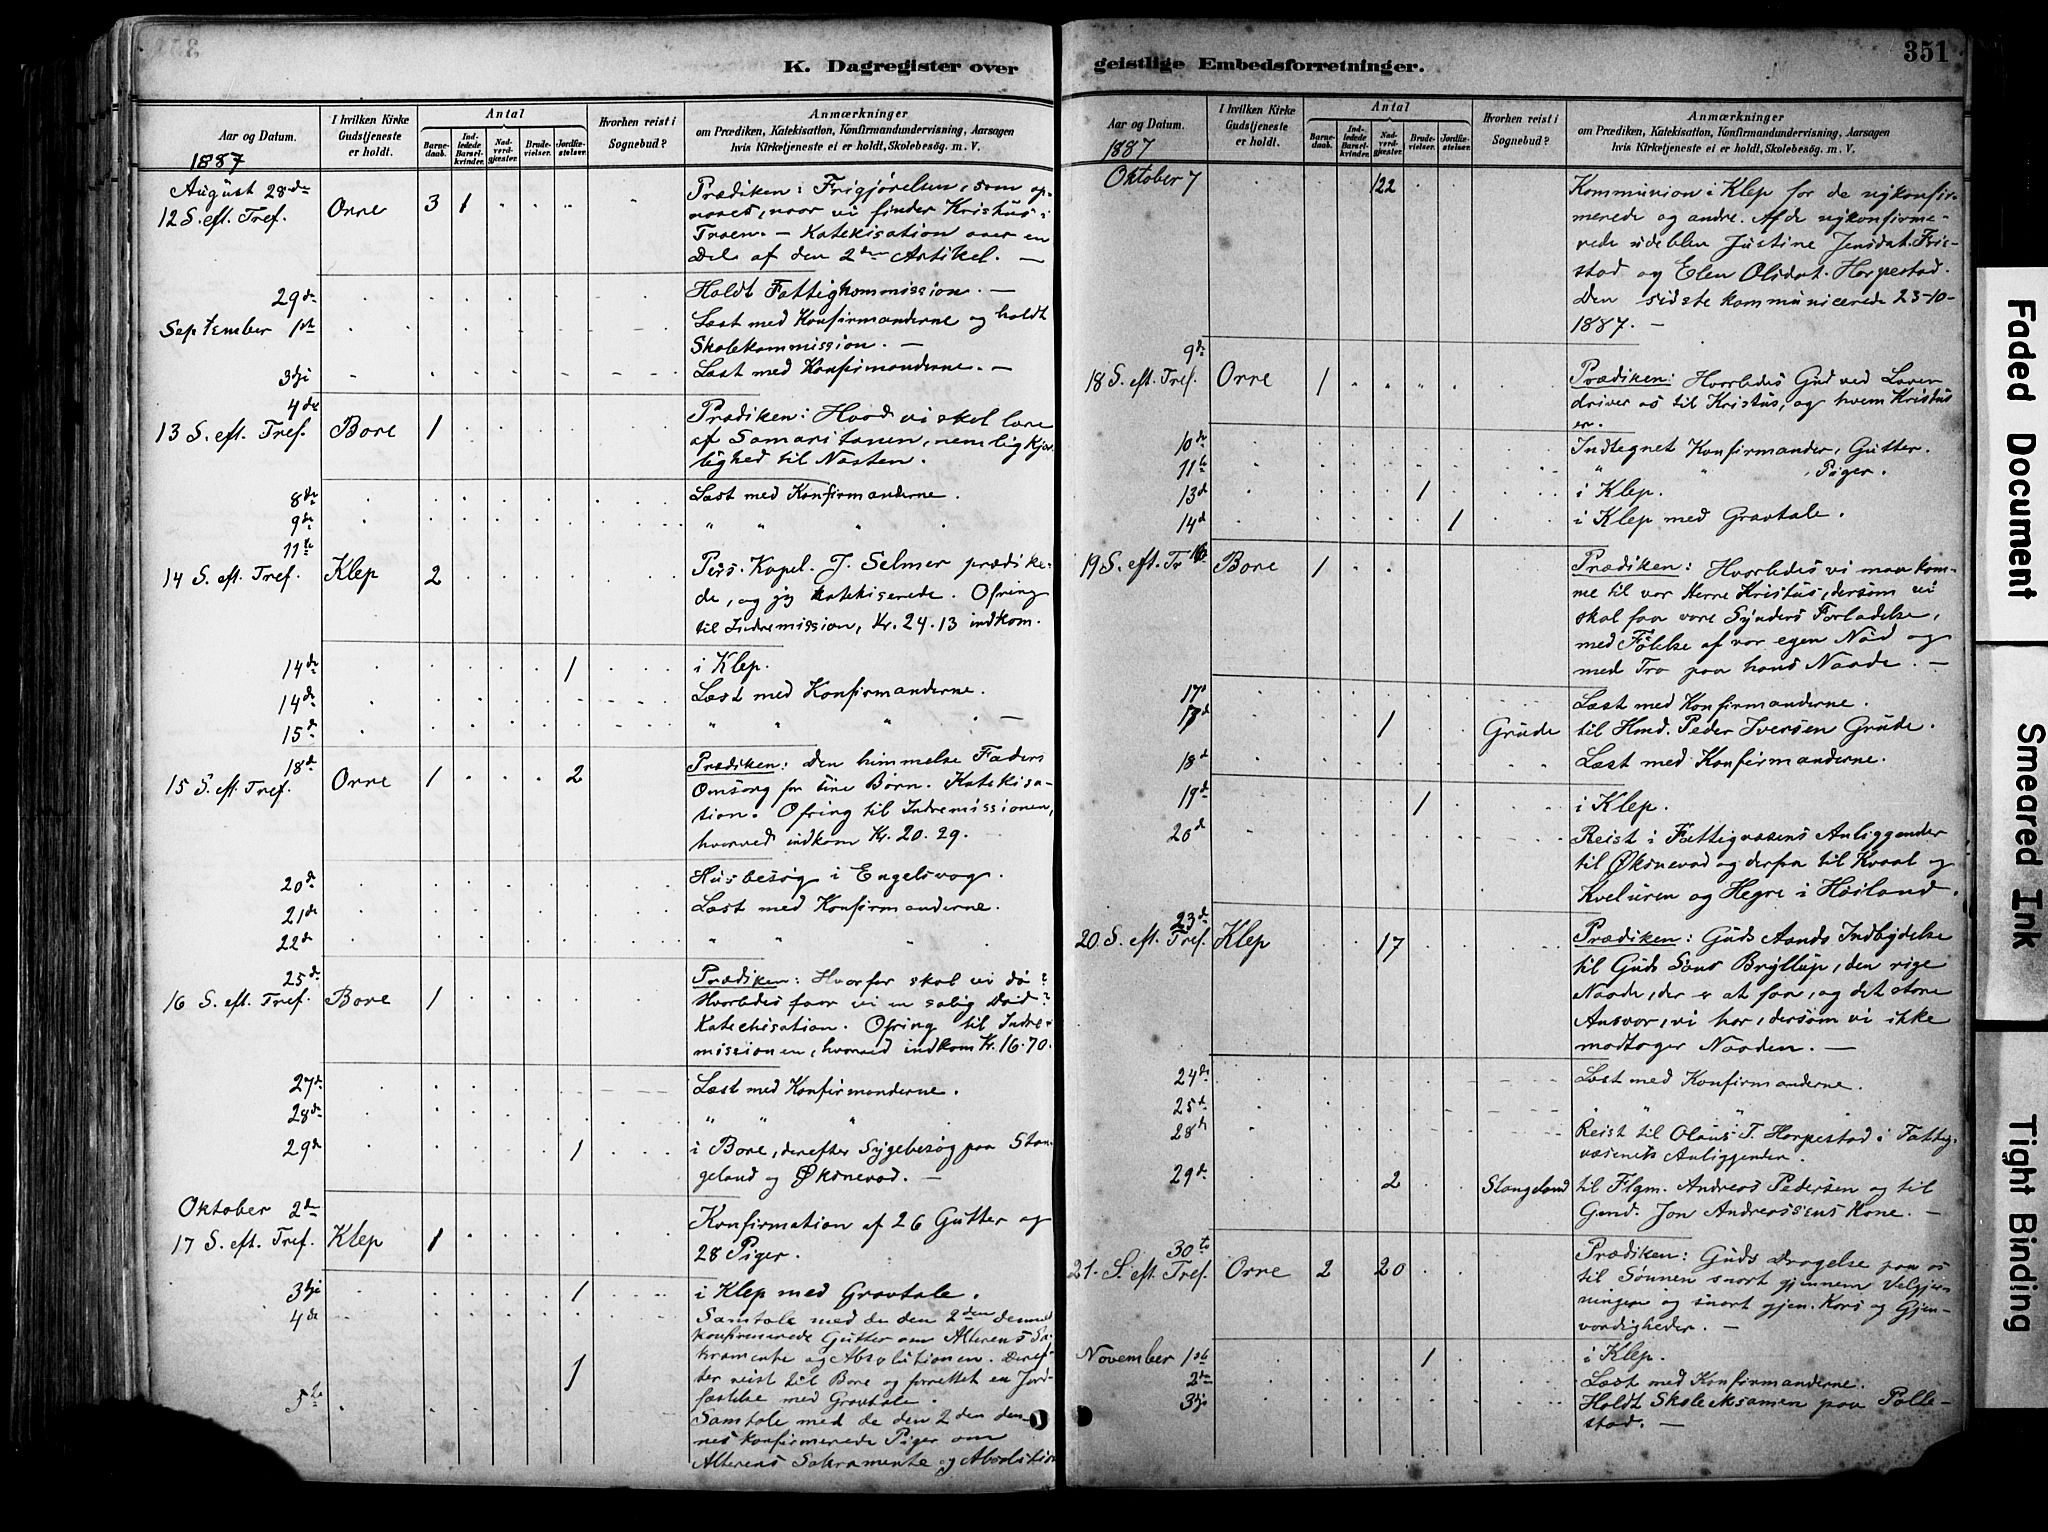 351
K. Dagregister over geistlige Embedsforretninger.
Aar og Datum.
I hvilken Kirke Gudstjeneste er holdt.
Antal
Barnedaab.
Indledede Barselkvinder.
Nadverdgjæster.
Brudevielser.
Jordfæstelser.
Hvorhen reist i Sognebud?
Anmærkninger
om Prædiken, Katekisation, Konfirmandundervisning, Aarsagen
hvis Kirketjeneste ei er holdt, Skolebesøg. m. V.
1887
August 28de
12 S. eft. Tref. Orre 3 1
Prædiken: Frigjørelsen, som op-
naaes, naar vi finder Kristus i
Troen. - Katekisation over en
Del af den 2den Artikel. -
29de Holdt Fattigkommission. -
September 1ste Læst med Konfirmanderne og holdt
Skolekommission. -
3dji Læst med Konfirmanderne. -
4de
13 S. eft. Tref. Bore 1
Prædiken: Hvad vi skal lære
af Samaritanen, nemlig kjær-
lighed til Næsten.
8de Læst med Konfirmanderne.
9de " " " "
11te
14 S. eft. Tref. Klep 2
Pers. Kapel. J. Selmer prædike-
de, og jeg katekiserede. Ofring
til Indremission, Kr. 24.13 indkom.
14de 1 i Klep.
14de Læst med Konfirmanderne.
15de " " " " -
18de
15 S. eft. Tref. Orre 1 2
Prædiken: Den himmelse Faders
Omsorg for sine Børn. Katekisa-
tion. Ofring til Indremissionen,
hvorved indkom Kr. 20.29.
20de Husbesøg i Engelsvog.
21de Læst med Konfirmanderne.
22de " " " .
25de
16 S. eft. Tref. Bore 1
Prædiken: Hvorfor skal vi dø?
Hvorledes faar vi en salig Død?
Katechisation. Ofring til Indre-
missionen, hvorved indkom Kr. 16.70.
27de Læst med Konfirmanderne.
28de " " "
29de 1 i Bore, derefter Sygebesøg paa Stan-
geland og Øksnevad. -
Oktober 2den
17 S. eft. Tref. Klep 1
Konfirmation af 26 Gutter og
28 Piger.
3dji 1 i Klep med Gravtale.
4de Samtale med de den 2den dennes
konfirmerede Gutter om Alterens Sa-
kramente og Absolutionen. Deref-
1 ter reist til Bore og forrettet en Jord-
fæstelse med Gravtale.
5te Samtale med de den 2den den-
nes konfirmerede Piger om
Alterens Sakramente og Absolution
Aar og Datum.
I hvilken Kirke Gudstjeneste er holdt.
Antal
Barnedaab.
Indledede Barselkvinder.
Nadverdgjæster.
Brudevielser.
Jordfæstelser.
Hvorhen reist i Sognebud?
Anmærkninger
om Prædiken, Katekisation, Konfirmandundervisning, Aarsagen
hvis Kirketjeneste ei er holdt, Skolebesøg. m. V.
1887
Oktober 7 122
Kommunion i Klep for de nykonfir-
merede og andre. Af de nykonfirme-
rede udeblev Justine Jensdat. Friis-
stad og Elen Olsdat. Horpestad.
Den sidste kommunicerede 23-10-
1887. -
9de
18 S. eft. Tref. Orre 1
Prædiken: Hvorledes Gud ved Loven
driver os til Kristus, og hvem Kristus
er.
10de Indtegnet Konfirmander, Gutter.
11te " " , Piger.
13de 1 i Klep.
14de 1 i Klep med Gravtale.
19 S. eft. Tr 16 Bore 1
Prædiken: Hvorledes vi maa kom-
me til vor Herre Kristus, dersom vi
skal faa vore Synders Forladelse,
med Følelse af vor egen Nød og
med Tro paa hans Naade. -
17de Læst med Konfirmanderne.
17de 1 Grude til Hmd. Peder Iversen Grude.
18de Læst med Konfirmanderne.
19de 1 i Klep.
20de Reist i Fattigvæsens Anliggender
til Øksnevad og derfra til Kvaal og
Kveluren og Hegre i Høiland.
23de
20 S. eft. Tref. Klep 17
Prædiken: Guds Aands Indbydelse
til Guds Søns Bryllup, den rige
Naade, der er at faa, og det store
Ansvar, vi har, dersom vi ikke
modtager Naaden. -
24de Læst med Konfirmanderne.
25de " " "
28de Reist til Olaus T. Horpestad i Fattig-
væsenets Anliggender.
29de 2 Stangeland til Flgm. Andreas Pedersen og til
Gmd. Jon Andreassens Kone. -
30te
21. S. eft. Tref. Orre 2 20
Prædiken: Guds Dragelse paa os
til Sønnen snart gjennem Velgjer-
ninger og snart gjen. Kors og Gjen-
vordigheder. -
November 1ste 1 i Klep.
2den Læst med Konfirmanderne.
3dji Holdt Skoleeksamen paa Polle-
stad. -
Faded Document
Smeared Ink
Tight Binding